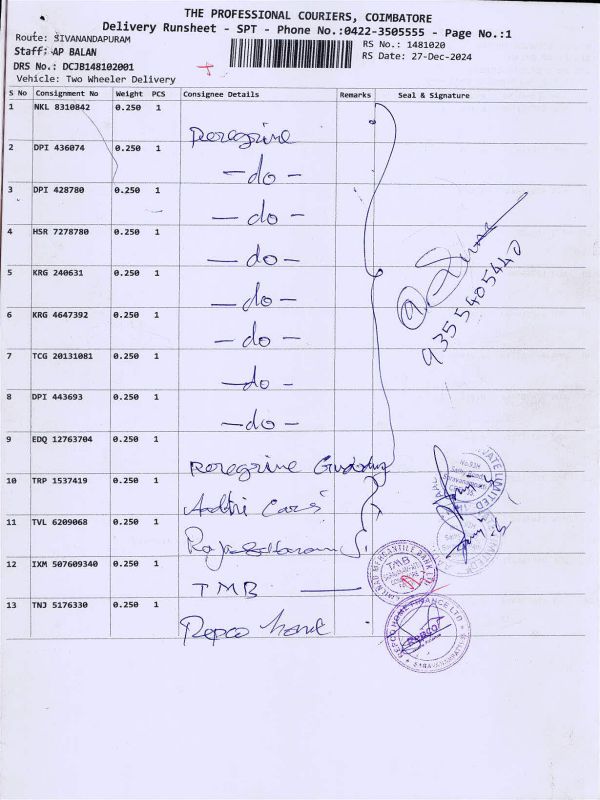 THE PROFESSIONAL COURIERS, COIMBATORE
Delivery Runsheet - SPT - Phone No.:0422-3505555 - Page No.:1
Route: SIVANANDAPURAM
RS No.: 1481020
Staff: AP BALAN
RS Date: 27-Dec-2024
DRS No.: DCJB148102001
Vehicle: Two Wheeler Delivery
S No Consignment No Weight PCS Consignee Details Remarks Seal & Signature
1 NKL 8310842 0.250 1 Peregrine
2 DPI 436074 0.250 1 - do -
3 DPI 428780 0.250 1 - do -
4 HSR 7278780 0.250 1 - do -
5 KRG 240631 0.250 1 - do -
6 KRG 4647392 0.250 1 - do -
7 TCG 20131081 0.250 1 - do -
8 DPI 443693 0.250 1 - do -
9355405440
9 EDQ 12763704 0.250 1 Peregrine
10 TRP 1537419 0.250 1
11 TVL 6209068 0.250 1
12 IXM 507609340 0.250 1 TMB
TMB
13 TNJ 5176330 0.250 1 Repco home
REPCO HOME FINANCE LTD